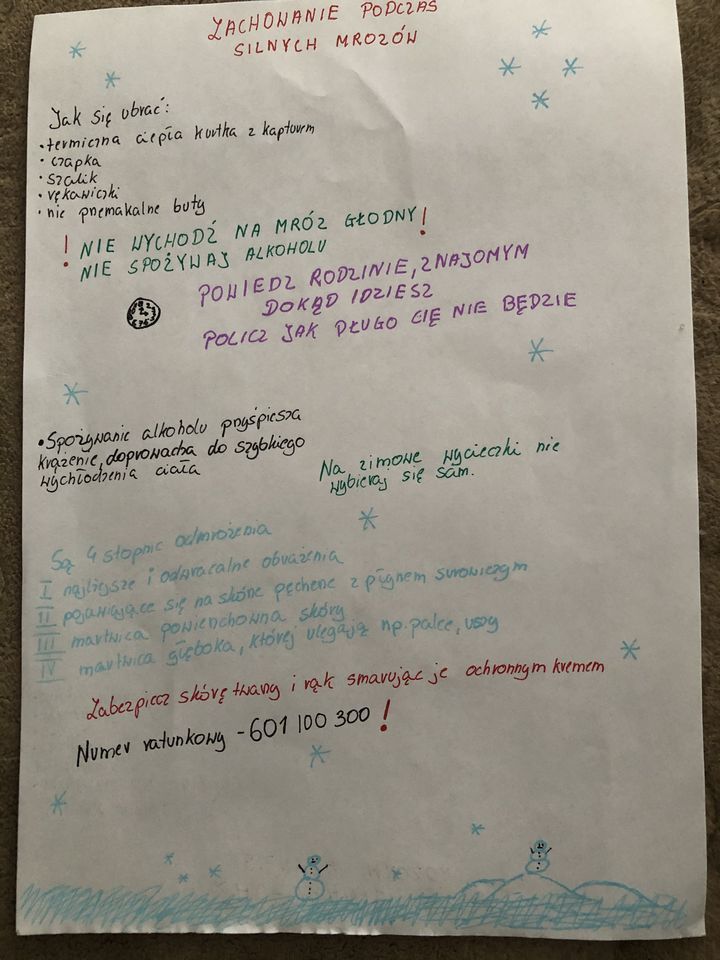 ZACHOWANIE PODCZAS
SILNYCH MROZÓW
Jak się ubrać:
• termiczna ciepła kurtka z kapturem
• czapka
• szalik
• rękawiczki
• nie przemakalne buty
! NIE WYCHODŹ NA MRÓZ GŁODNY!
NIE SPOŻYWAJ ALKOHOLU
POWIEDZ RODZINIE, ZNAJOMYM
DOKĄD IDZIESZ
POLICZ JAK DŁUGO CIĘ NIE BĘDZIE
• Spożywanie alkoholu przyśpiesza
krążenie, doprowadza do szybkiego
wychłodzenia ciała
Na zimowe wycieczki nie
wybieraj się sam.
Są 4 stopnie odmrożenia
I najlżejsze i odwracalne obrażenia
II pojawiające się na skórze pęcherze z płynem surowiczym
III martwica powierzchowna skóry
IV martwica głęboka, której ulegają np. palce, uszy
Zabezpiecz skórę twarzy i rąk smarując je ochronnym kremem
Numer ratunkowy - 601 100 300 !